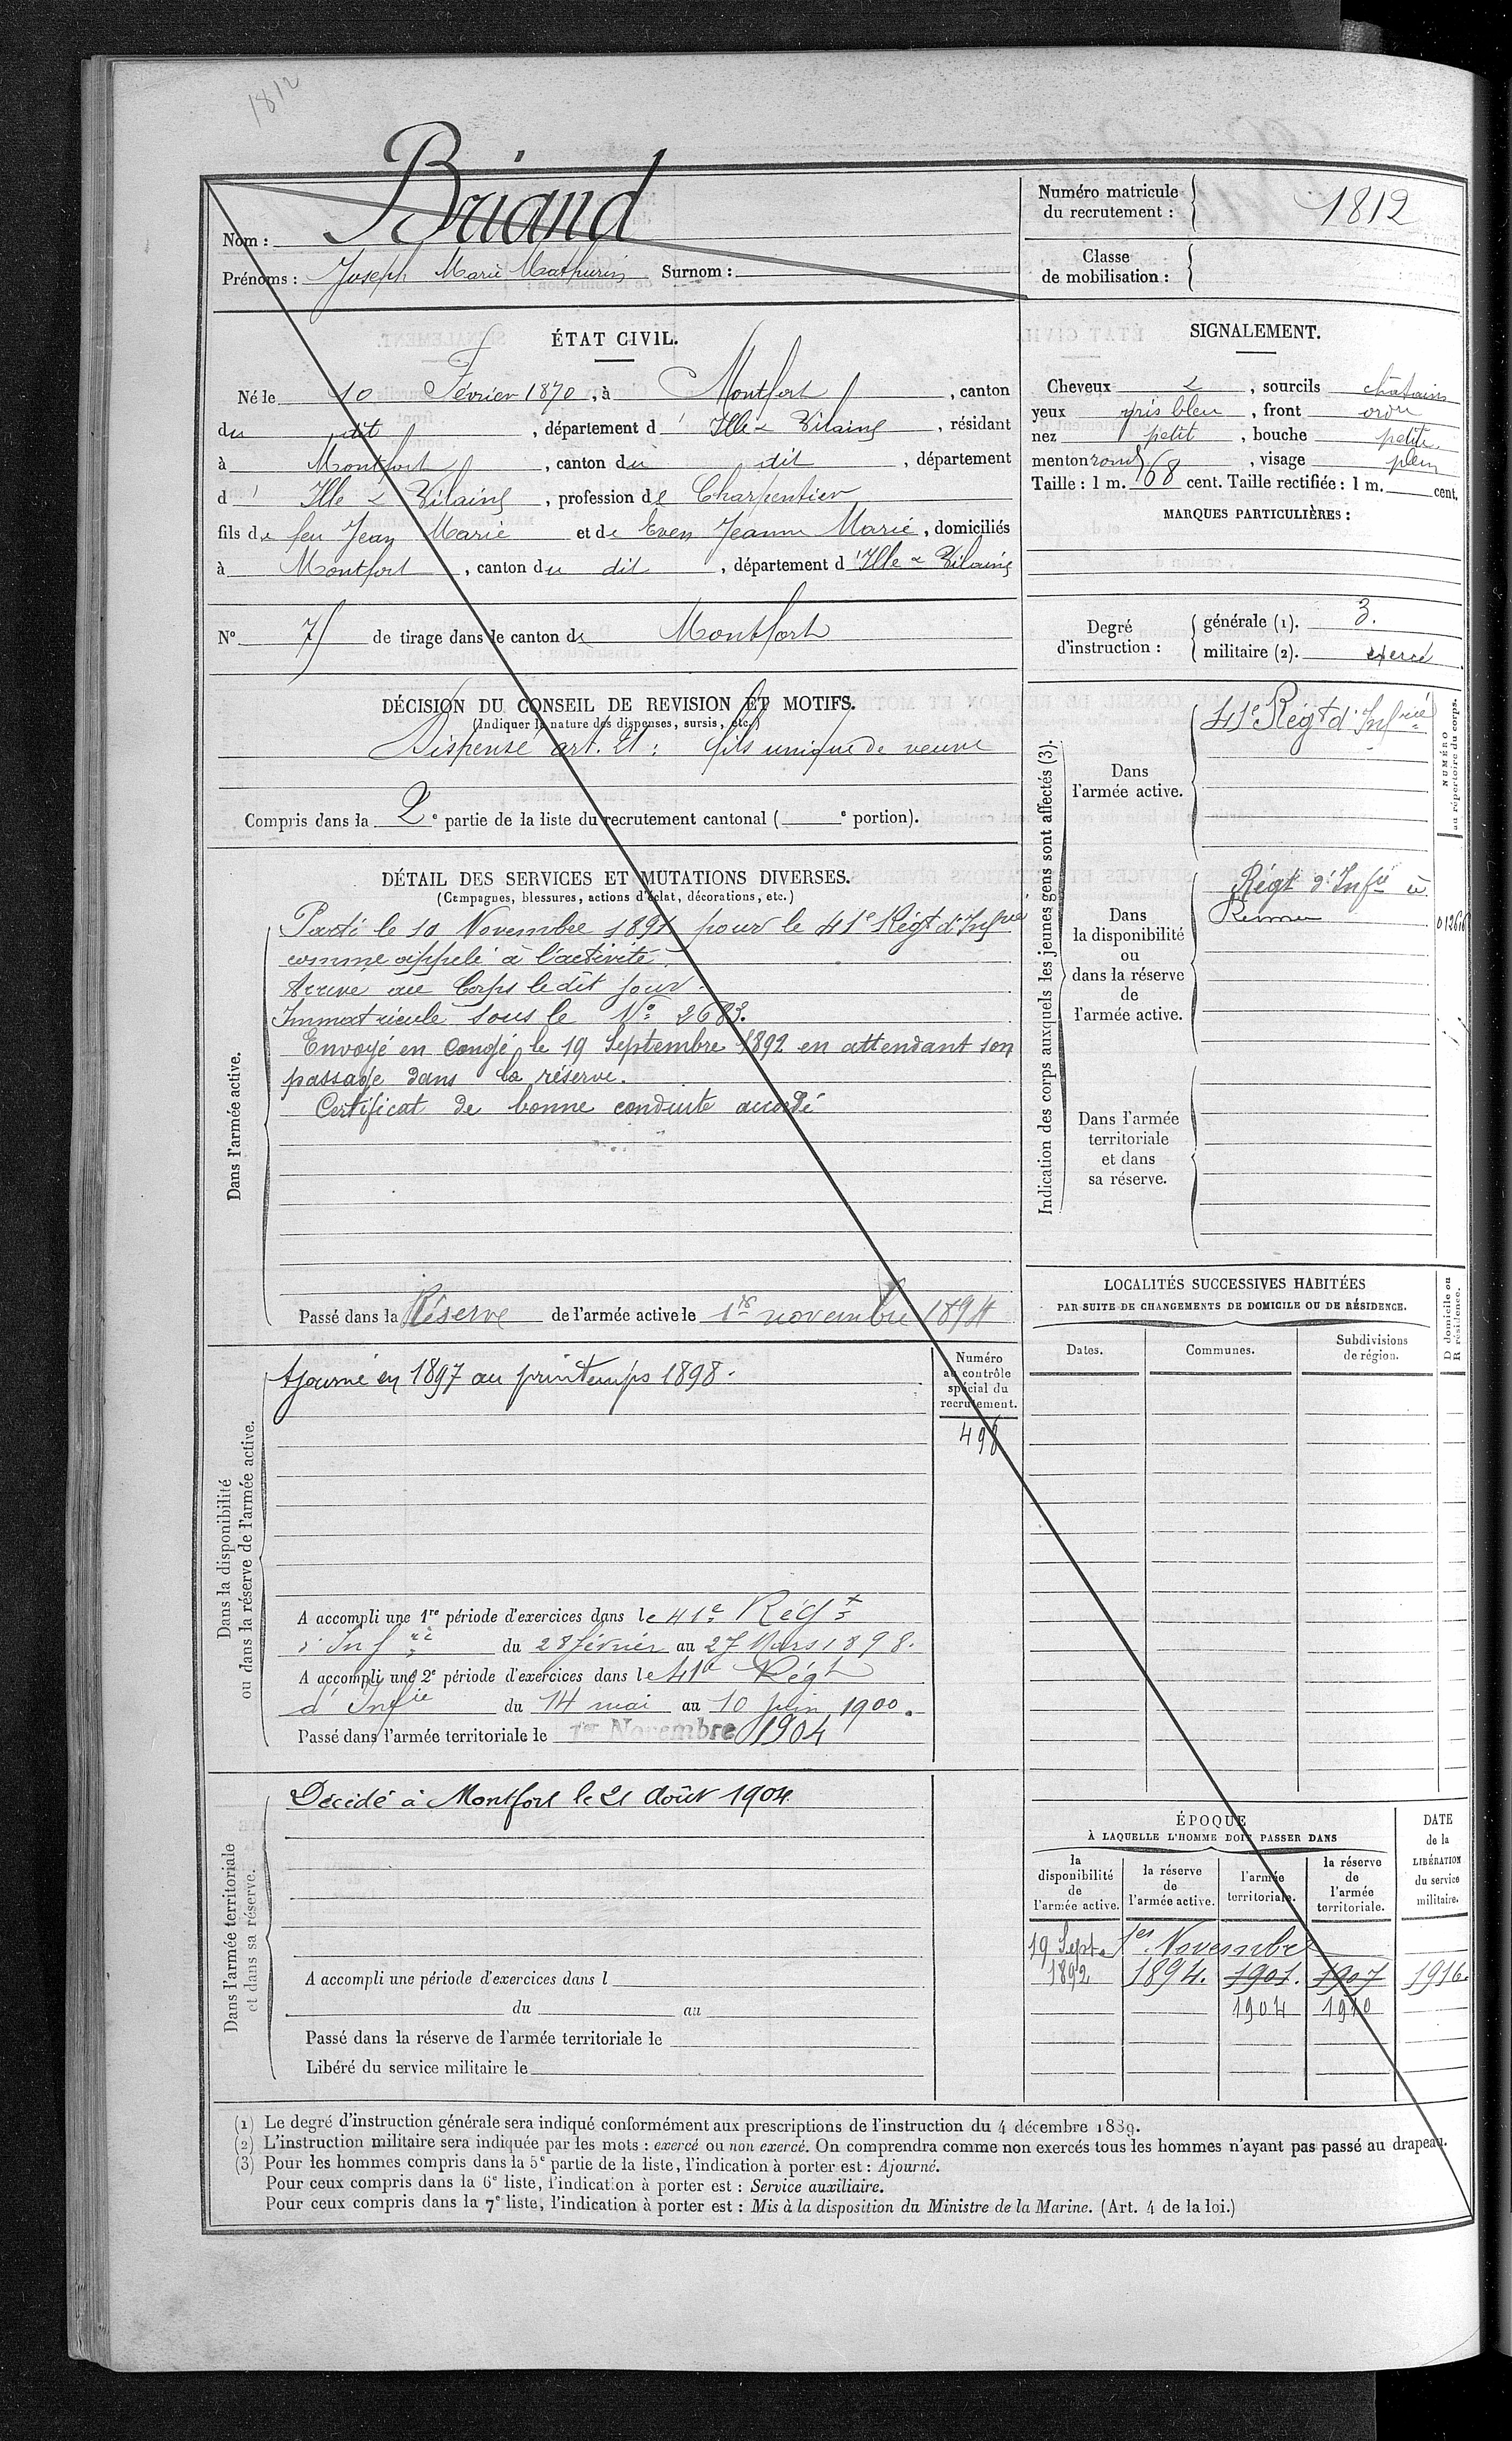 1812
Nom : Briand
Prénoms : Joseph Marie Mathurin Surnom :
Numéro matricule du recrutement : 1812
Classe de mobilisation :
ÉTAT CIVIL.
Né le 10 Février 1870, à Montfort, canton
du dit, département d'Ille & Vilaine, résidant
à Montfort, canton du dit, département
d'Ille & Vilaine, profession de Charpentier
fils de feu Jean Marie et de Even Jeanne Marie, domiciliés
à Montfort, canton du dit, département d'Ille & Vilaine
N° 71 de tirage dans le canton de Montfort
SIGNALEMENT.
Cheveux &, sourcils châtains
yeux gris bleu, front ordre
nez petit, bouche petite
menton rond, visage plein
Taille : 1 m. 68 cent. Taille rectifiée : 1 m. cent.
MARQUES PARTICULIÈRES :
Degré d'instruction : générale (1). 3.
militaire (2). exercé
DÉCISION DU CONSEIL DE REVISION ET MOTIFS.
(Indiquer la nature des dispenses, sursis, etc.)
Dispensé art. 21 : fils unique de veuve
Compris dans la 2e partie de la liste du recrutement cantonal ( e portion).
DÉTAIL DES SERVICES ET MUTATIONS DIVERSES.
(Campagnes, blessures, actions d'éclat, décorations, etc.)
Dans l'armée active.
Parti le 10 Novembre 1891 pour le 41e Régt d'Infrie
comme appelé à l'activité.
Arrivé au Corps le dit jour.
Immatriculé sous le No 2683.
Envoyé en congé le 19 Septembre 1892 en attendant son
passage dans la réserve.
Certificat de bonne conduite accordé
Passé dans la Réserve de l'armée active le 1er novembre 1894
Indication des corps auxquels les jeunes gens sont affectés (3).
Dans l'armée active.
41e Régt d'Infrie
NUMÉRO au répertoire du corps.
Dans la disponibilité ou dans la réserve de l'armée active.
Régt d'Infie à
Rennes
Dans l'armée territoriale et dans sa réserve.
LOCALITÉS SUCCESSIVES HABITÉES
PAR SUITE DE CHANGEMENTS DE DOMICILE OU DE RÉSIDENCE.
Dates. Communes. Subdivisions de région.
D domicile ou R résidence.
Dans la disponibilité ou dans la réserve de l'armée active.
Ajourné en 1897 au printemps 1898.
Numéro au contrôle spécial du recrutement.
498
A accompli une 1re période d'exercices dans le 41e Régt
d'Infrie du 28 février au 27 Mars 1898.
A accompli une 2e période d'exercices dans le 41e Régt
d'Infie du 14 mai au 10 juin 1900.
Passé dans l'armée territoriale le 1er Novembre 1904
Dans l'armée territoriale et dans sa réserve.
Décédé à Montfort le 21 Août 1904.
A accompli une période d'exercices dans l
du au
Passé dans la réserve de l'armée territoriale le
Libéré du service militaire le
ÉPOQUE
À LAQUELLE L'HOMME DOIT PASSER DANS
la disponibilité de l'armée active. la réserve de l'armée active. l'armée territoriale. la réserve de l'armée territoriale.
DATE de la LIBÉRATION du service militaire.
19 Septe 1er Novembre
1892 1894. 1901. 1907 1916.
1904 1910
(1) Le degré d'instruction générale sera indiqué conformément aux prescriptions de l'instruction du 4 décembre 1889.
(2) L'instruction militaire sera indiquée par les mots : exercé ou non exercé. On comprendra comme non exercés tous les hommes n'ayant pas passé au drapeau.
(3) Pour les hommes compris dans la 5e partie de la liste, l'indication à porter est : Ajourné.
Pour ceux compris dans la 6e liste, l'indication à porter est : Service auxiliaire.
Pour ceux compris dans la 7e liste, l'indication à porter est : Mis à la disposition du Ministre de la Marine. (Art. 4 de la loi.)